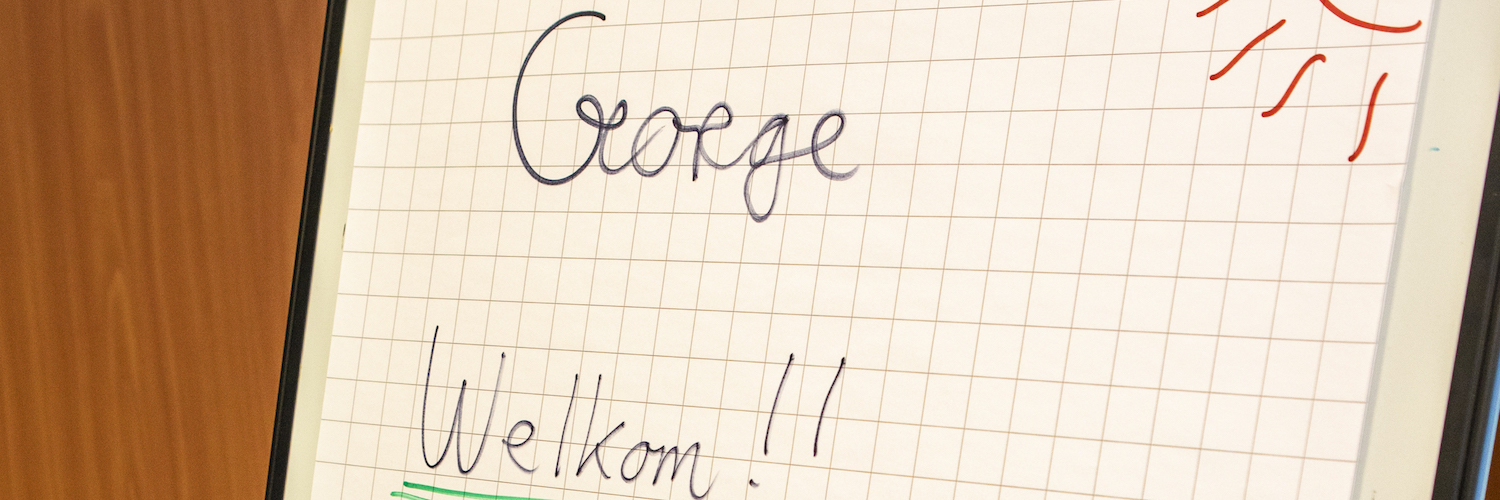 George
Welkom!!